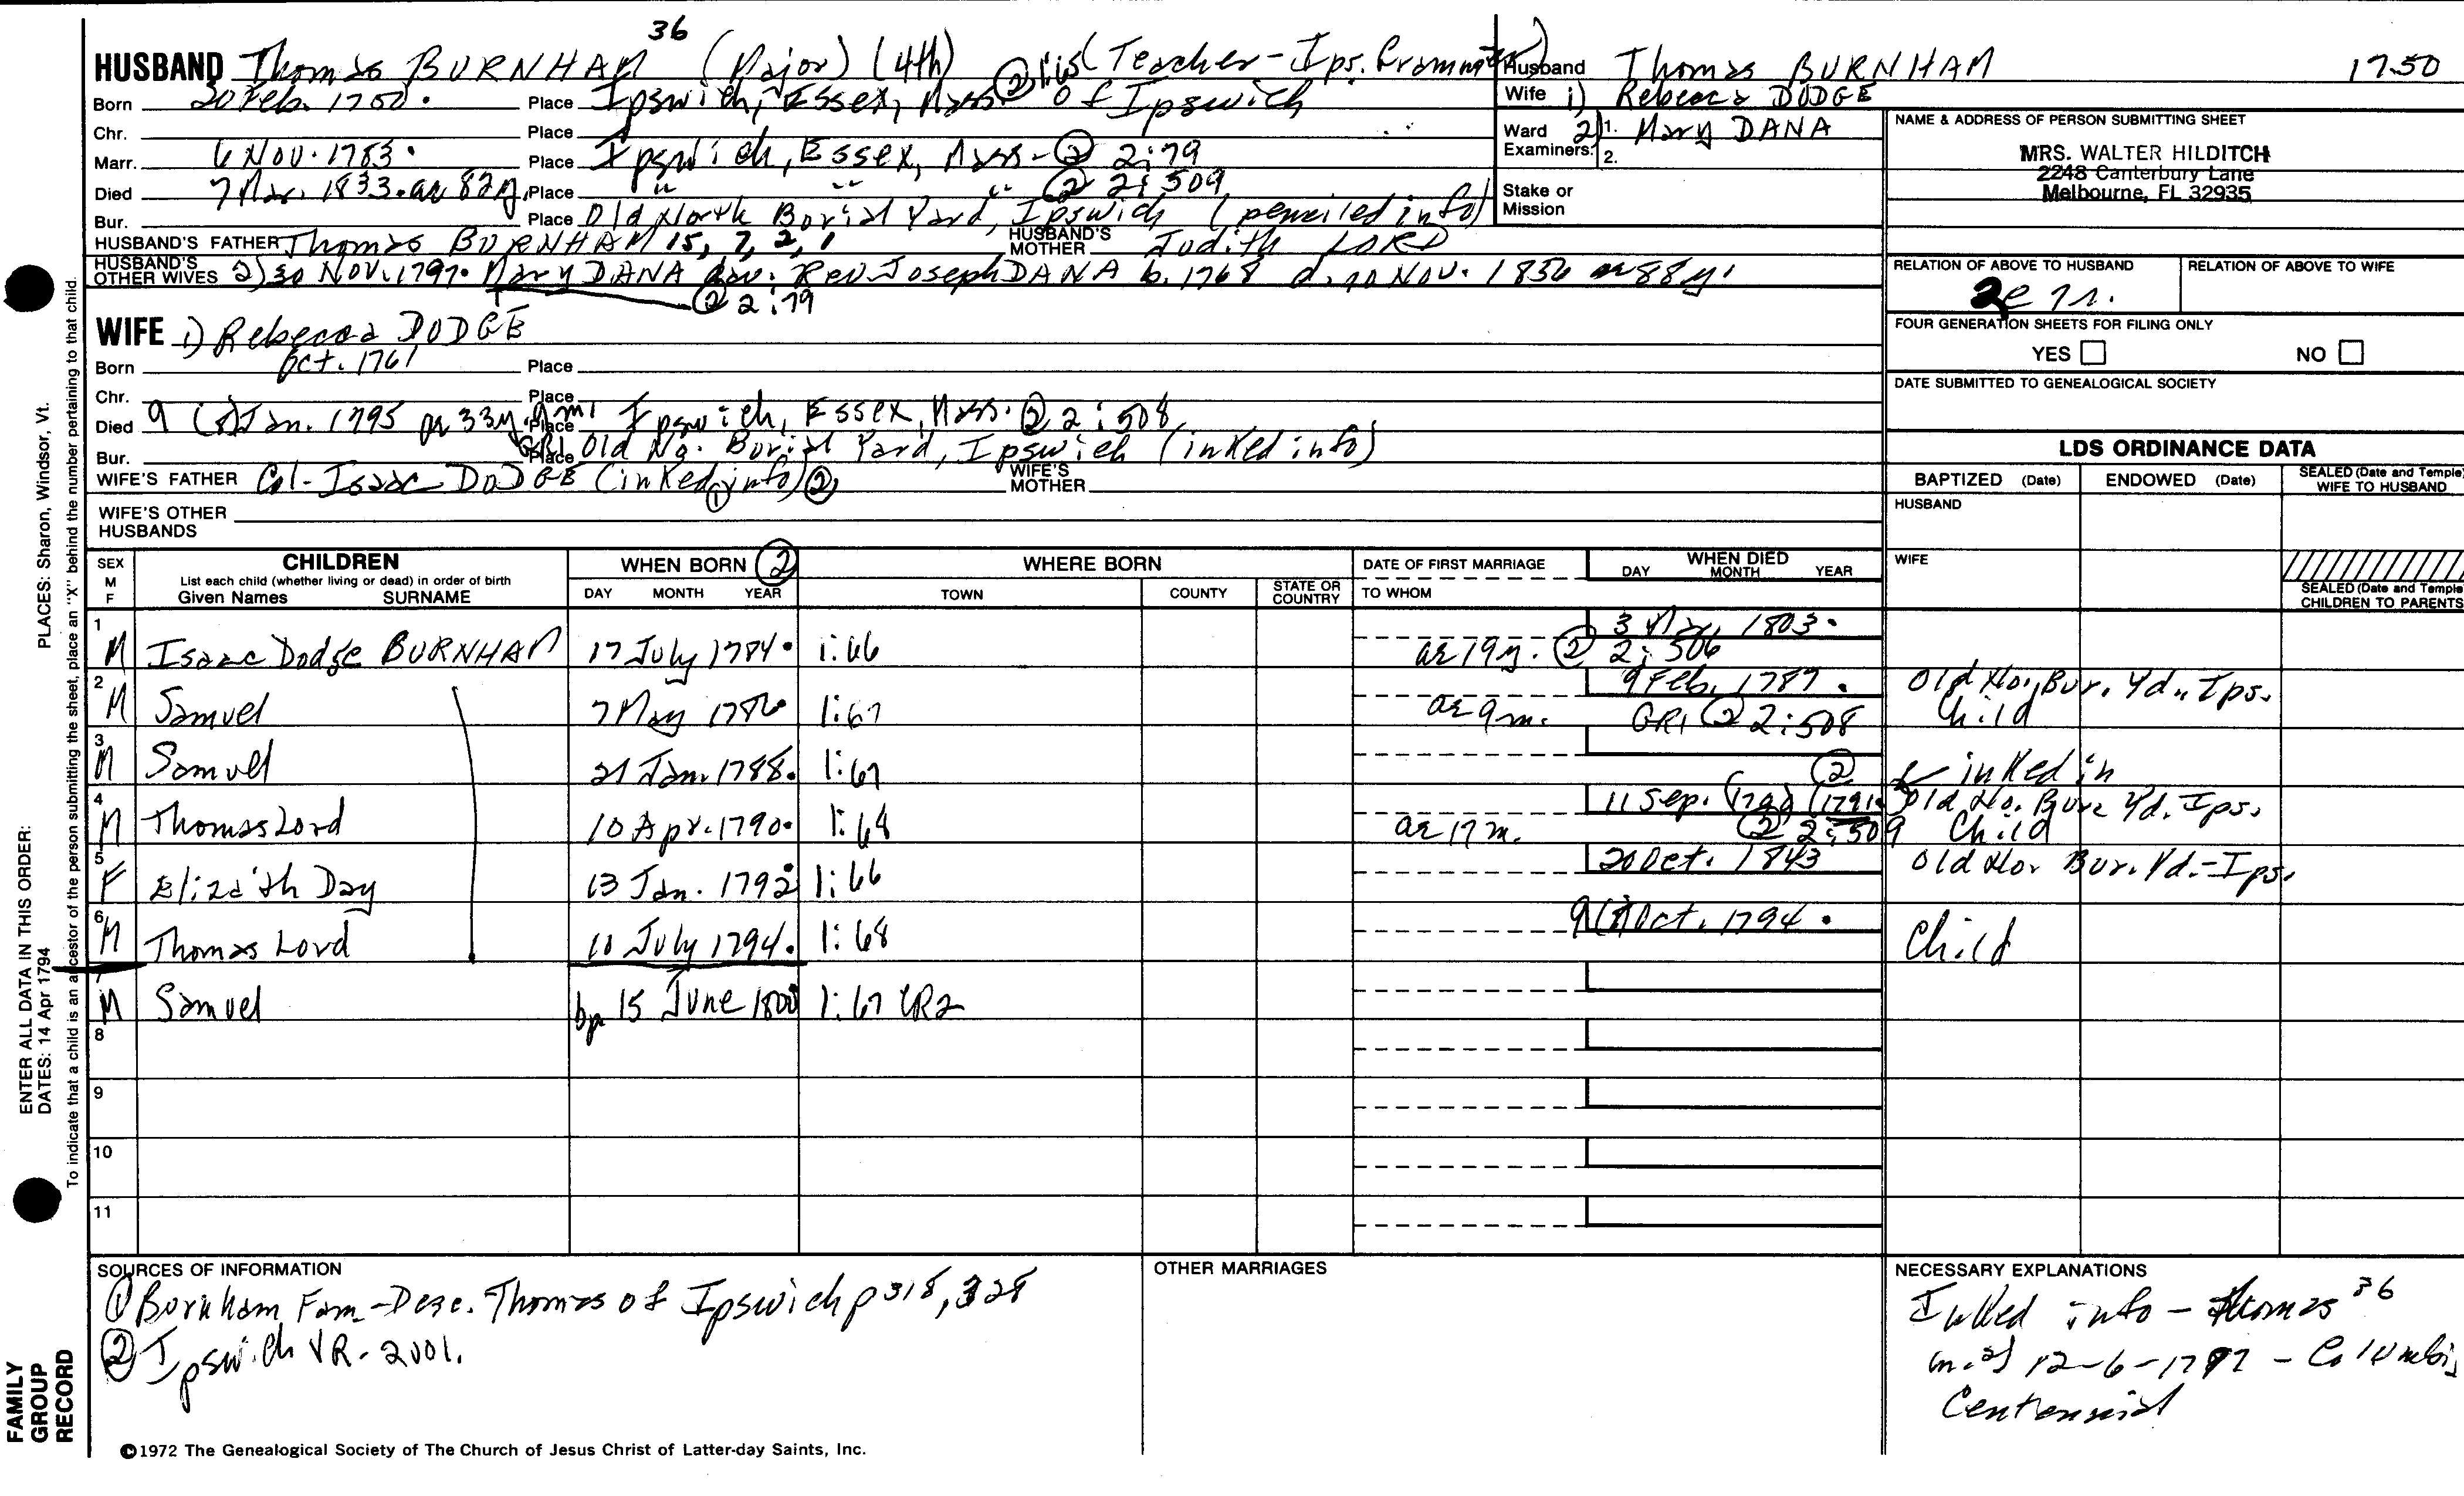 36
HUSBAND Thomas BURNHAM (Major) (4th) (Teacher-Ips. Grammar)
Born 20 Feb. 1750. Place Ipswich, Essex, Mass. ② of Ipswich
Chr. Place
Marr. 6 Nov. 1783. Place Ipswich, Essex, Mass. - ② 2:79
Died 7 Mar. 1833. ae 82y. Place " " " ② 2:509
Bur. Place Old North Burial Yard, Ipswich (penciled info)
HUSBAND'S FATHER Thomas BURNHAM 15, 7, 2, 1 HUSBAND'S MOTHER Judith LORD
HUSBAND'S OTHER WIVES 2) 30 NOV. 1797. Mary DANA dau. Rev. Joseph DANA b. 1768 d. 20 NOV. 1856 ae 88y.
② 2:79
WIFE 1) Rebecca DODGE
Born Oct. 1761 Place
Chr. Place
Died 9 (8) Jan. 1795 ae 33y. 9m. Place Ipswich, Essex, Mass. ② 2:508
Bur. GR1 Place Old No. Burial Yard, Ipswich (inked info)
WIFE'S FATHER Col. Isaac DODGE (inked info) ② WIFE'S MOTHER
①
WIFE'S OTHER HUSBANDS
Husband Thomas BURNHAM 1750
Wife 1) Rebecca DODGE
Ward 1. 2) Mary DANA
Examiners: 2.
Stake or Mission
NAME & ADDRESS OF PERSON SUBMITTING SHEET
MRS. WALTER HILDITCH
2248 Canterbury Lane
Melbourne, FL 32935
RELATION OF ABOVE TO HUSBAND RELATION OF ABOVE TO WIFE
FOUR GENERATION SHEETS FOR FILING ONLY
YES NO
DATE SUBMITTED TO GENEALOGICAL SOCIETY
LDS ORDINANCE DATA
BAPTIZED (Date) ENDOWED (Date) SEALED (Date and Temple) WIFE TO HUSBAND
HUSBAND
WIFE
SEALED (Date and Temple) CHILDREN TO PARENTS
SEX M F CHILDREN WHEN BORN ② WHERE BORN DATE OF FIRST MARRIAGE WHEN DIED
List each child (whether living or dead) in order of birth
Given Names SURNAME DAY MONTH YEAR TOWN COUNTY STATE OR COUNTRY TO WHOM DAY MONTH YEAR
1 M Isaac Dodge BURNHAM 17 July 1784. 1:66 ae 19y. ② 2:506 3 Mar. 1803.
2 M Samuel 7 May 1786 1:67 ae 9m. 9 Feb. 1787. GR1 ② 2:508 Old No. Bur. Yd., Ips. Child
3 M Samuel 21 Jan. 1788. 1:67 ② inked in
4 M Thomas Lord 10 Apr. 1790. 1:68 ae 17m. 11 Sep. (1791. ② 2:509 Old No. Bur. Yd. Ips. Child
5 F Eliza'th Day 13 Jan. 1792 1:66 20 Oct. 1843 Old Nor Bur. Yd.-Ips.
6 M Thomas Lord 10 July 1794. 1:68 Oct. 1794. Child
7 M Samuel bp 15 June 1800 1:67 CR2
8
9
10
11
SOURCES OF INFORMATION
① Burnham Fam-Desc. Thomas of Ipswich p 318, 328
② Ipswich VR-2001.
OTHER MARRIAGES
NECESSARY EXPLANATIONS
Inked info - Thomas 36
m. 2) 12-6-1797 -
Centennial
©1972 The Genealogical Society of The Church of Jesus Christ of Latter-day Saints, Inc.
PLACES: Sharon, Windsor, Vt.
ENTER ALL DATA IN THIS ORDER:
DATES: 14 Apr 1794
To indicate that a child is an ancestor of the person submitting the sheet, place an "X" behind the number pertaining to that child.
FAMILY
GROUP
RECORD